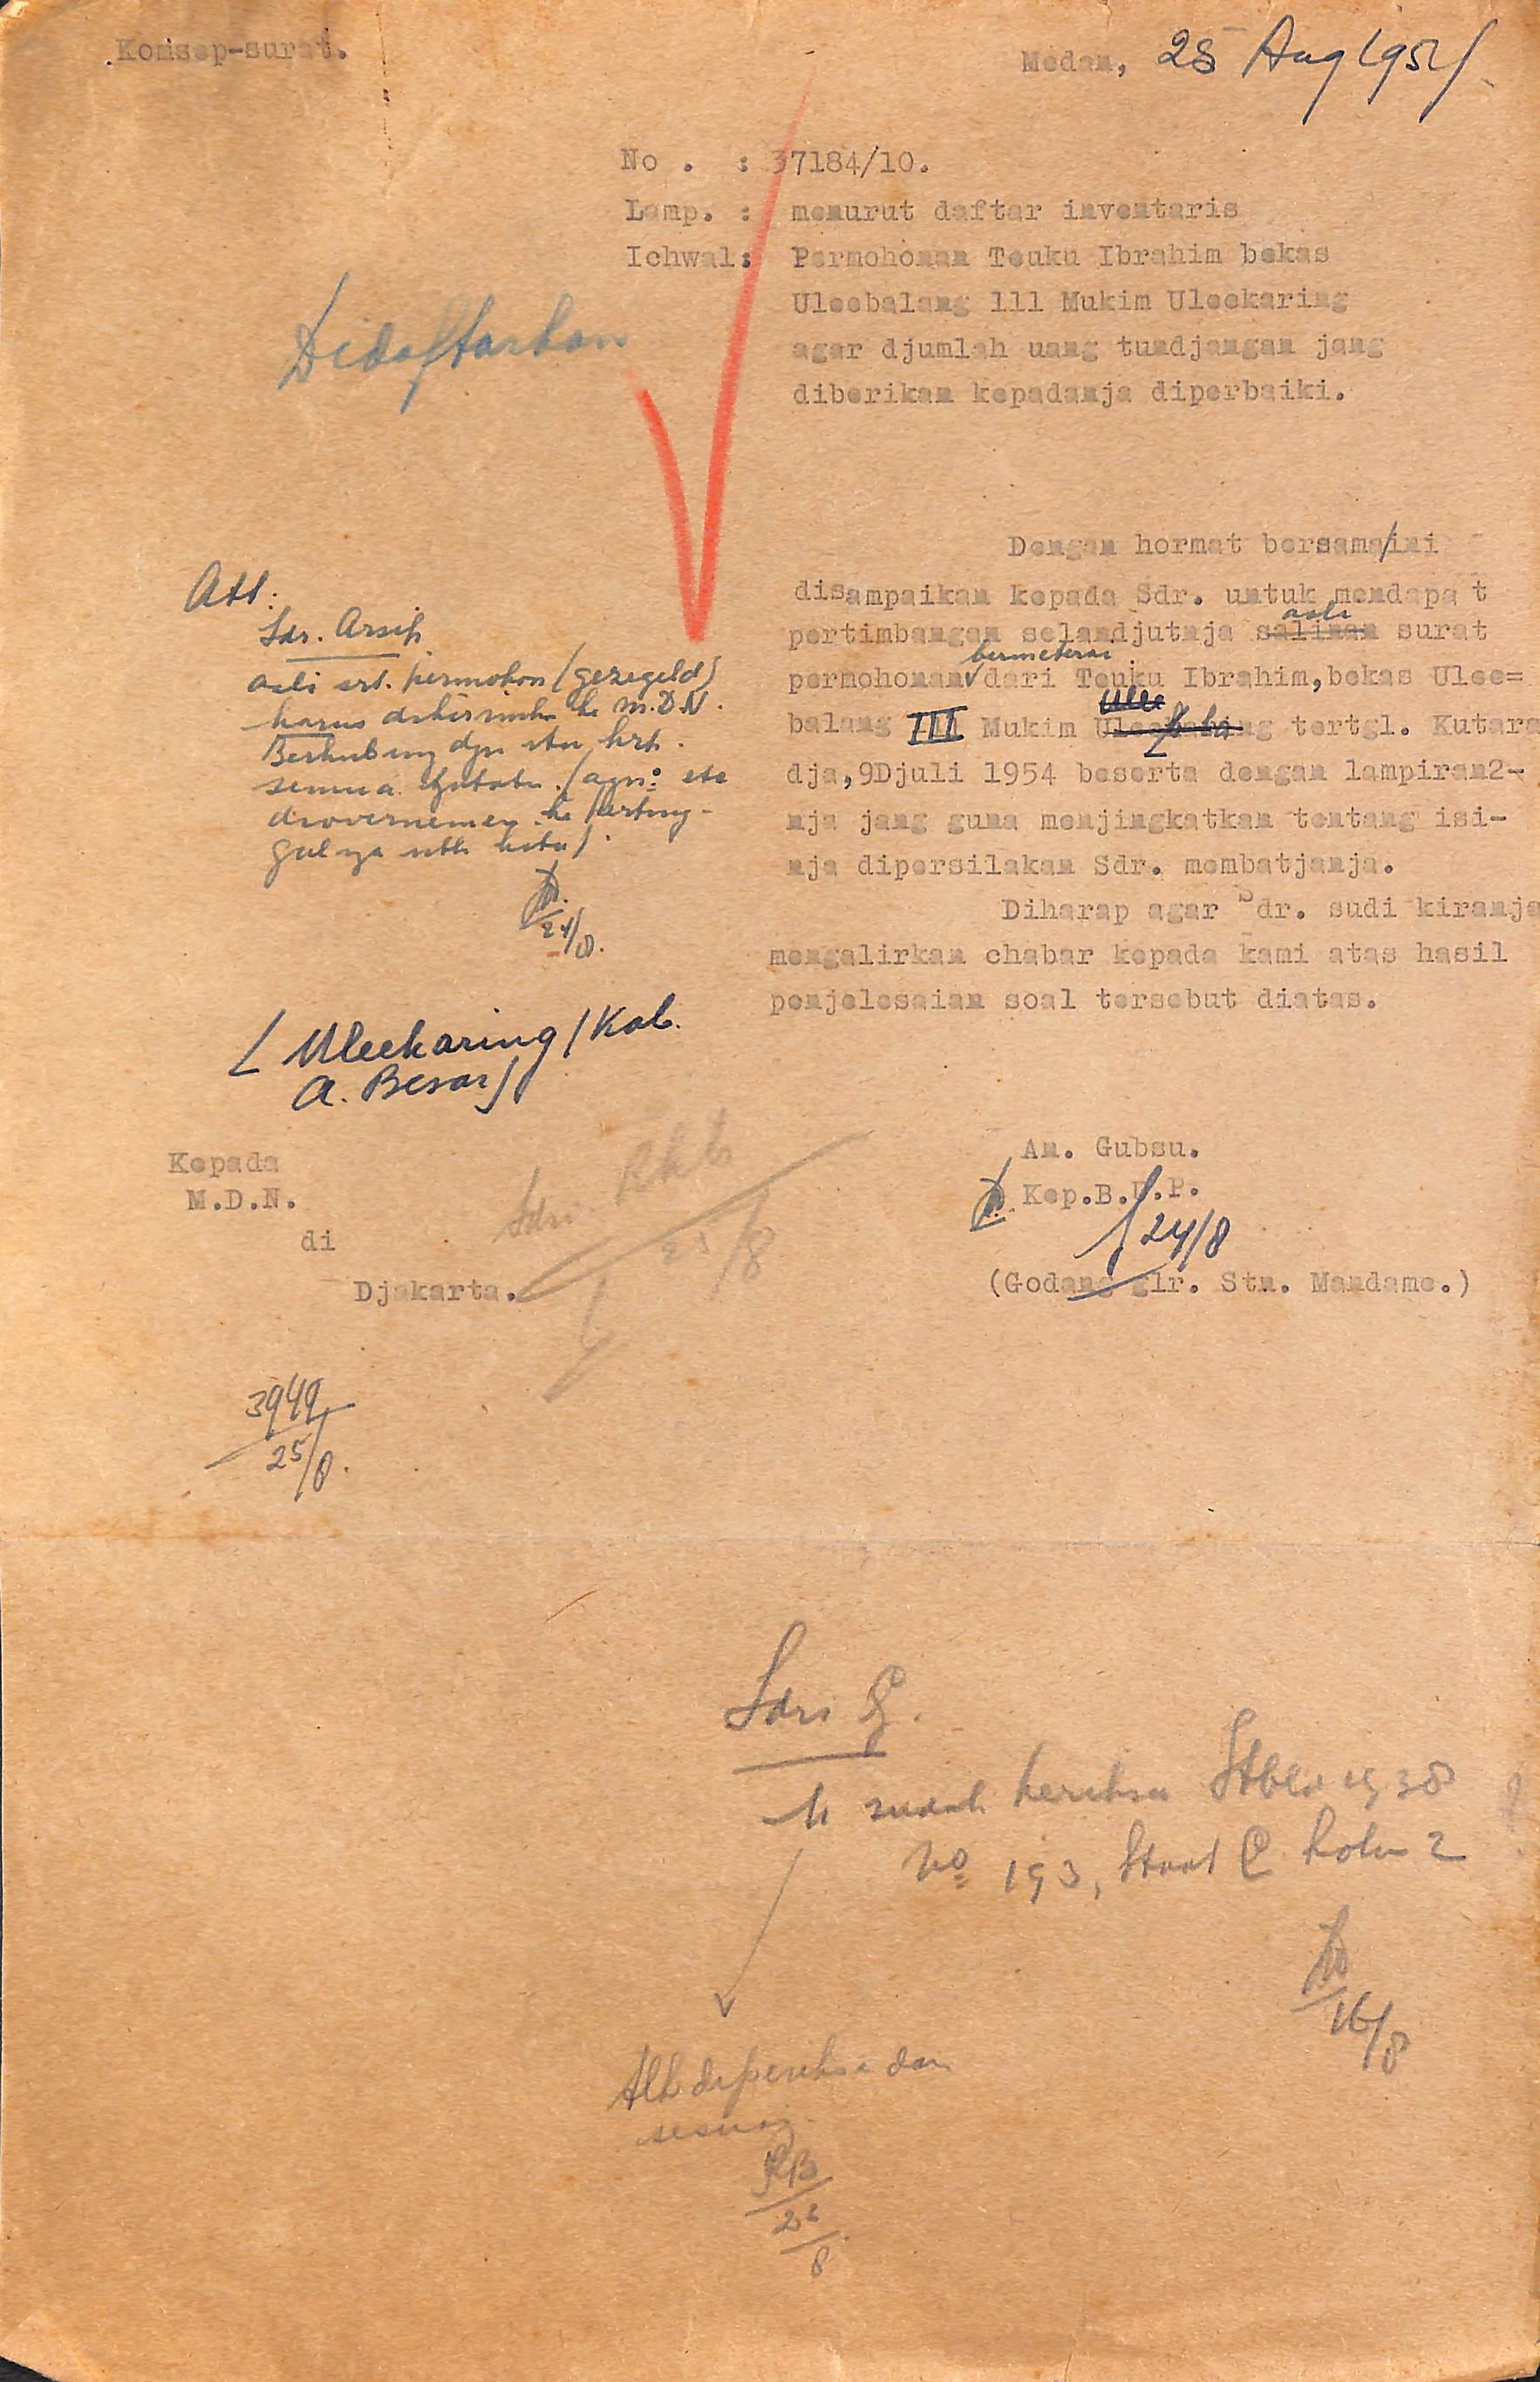 Konsep-surat.
Medan, 25 Aug 1954
No . : 37184/10.
Lamp. : menurut daftar inventaris
Ichwal: Permohonan Teuku Ibrahim bekas
Uleebalang 111 Mukim Uleekaring
agar djumlah uang tundjangan jang
diberikan kepadanja diperbaiki.
Didaftarkan
Dengan hormat bersama/ini
disampaikan kepada Sdr. untuk mendapa t
asli
pertimbangan selandjutnja salinan surat
bermeterai
permohonan dari Teuku Ibrahim, bekas Ulee=
balang III Mukim Uleekaring tertgl. Kutara
dja, 9Djuli 1954 beserta dengan lampiran2-
nja jang guna menjingkatkan tentang isi-
nja dipersilakan Sdr. membatjanja.
Diharap agar Sdr. sudi kiranja
mengalirkan chabar kepada kami atas hasil
penjelesaian soal tersebut diatas.
Att:
Sdr. Arsip
asli srt. permohon (gezegeld)
harus dikirimkan ke M.D.N.
Berhubung dgn itu
semua
24/8.
[Uleekaring/Kab.
A. Besar]
Kepada
M.D.N.
di
Djakarta.
Sdr.
25/8
An. Gubsu.
Kep.B.U.P.
24/8
(Godang glr. Stn. Mandame.)
3949
25/8.
Sdr.
sudah periksa Stbld 1938
No 193, Staat C kolom 2
16/8
Tlh diperiksa dan
sesuai.
8